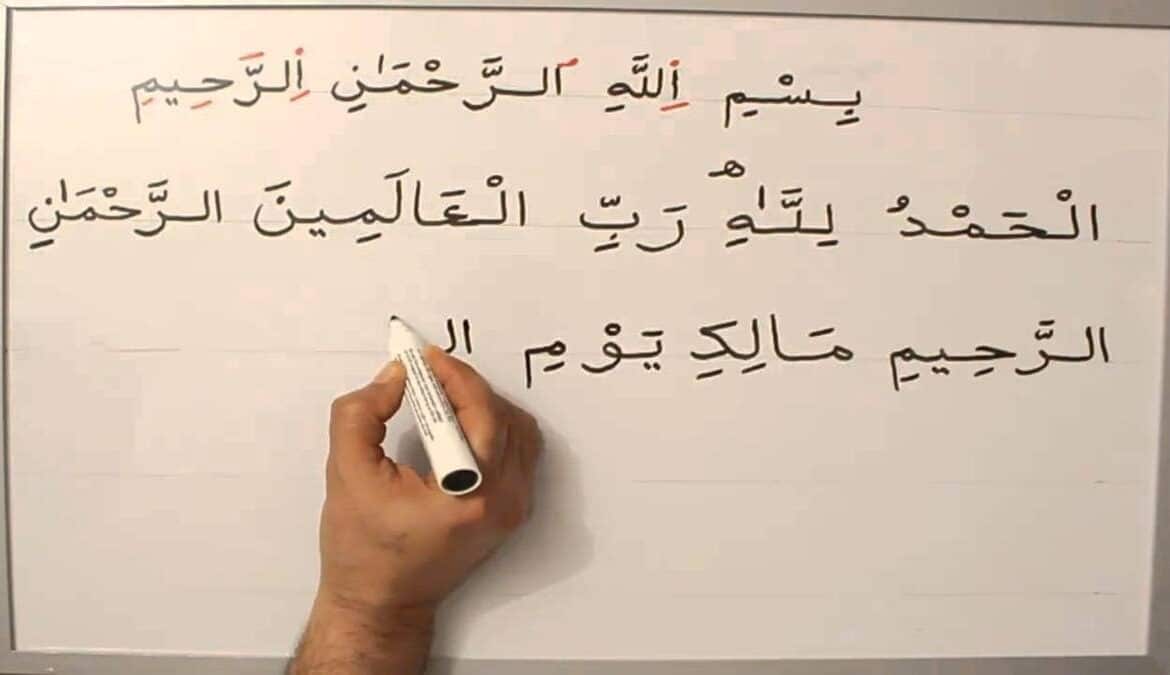 بِسْمِ اِللَّهِ الرَّحْمَٰنِ اِلرَّحِيمِ
الْحَمْدُ لِلَّٰهِ رَبِّ الْعَالَمِينَ الرَّحْمَٰنِ
الرَّحِيمِ مَالِكِ يَوْمِ